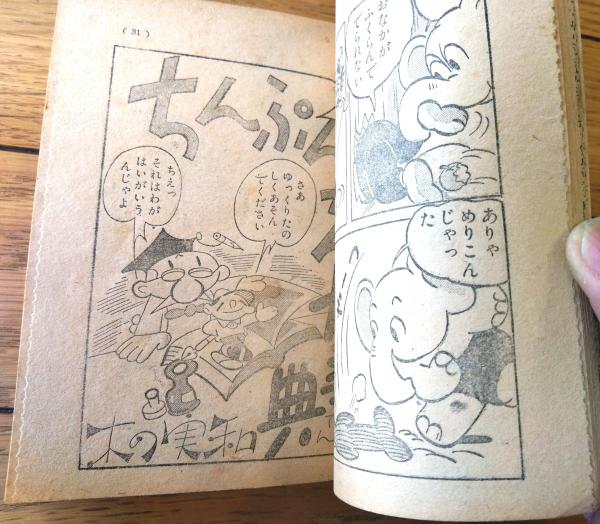 おなかが
ふくらんで
でられない
ありゃ
めりこん
じゃっ
た
( 31 )
ちんぷん
さあ
ゆっくりたの
しくあそん
でください
ちえっ
それはわが
はいがいう
んじゃよ
典
木の実和